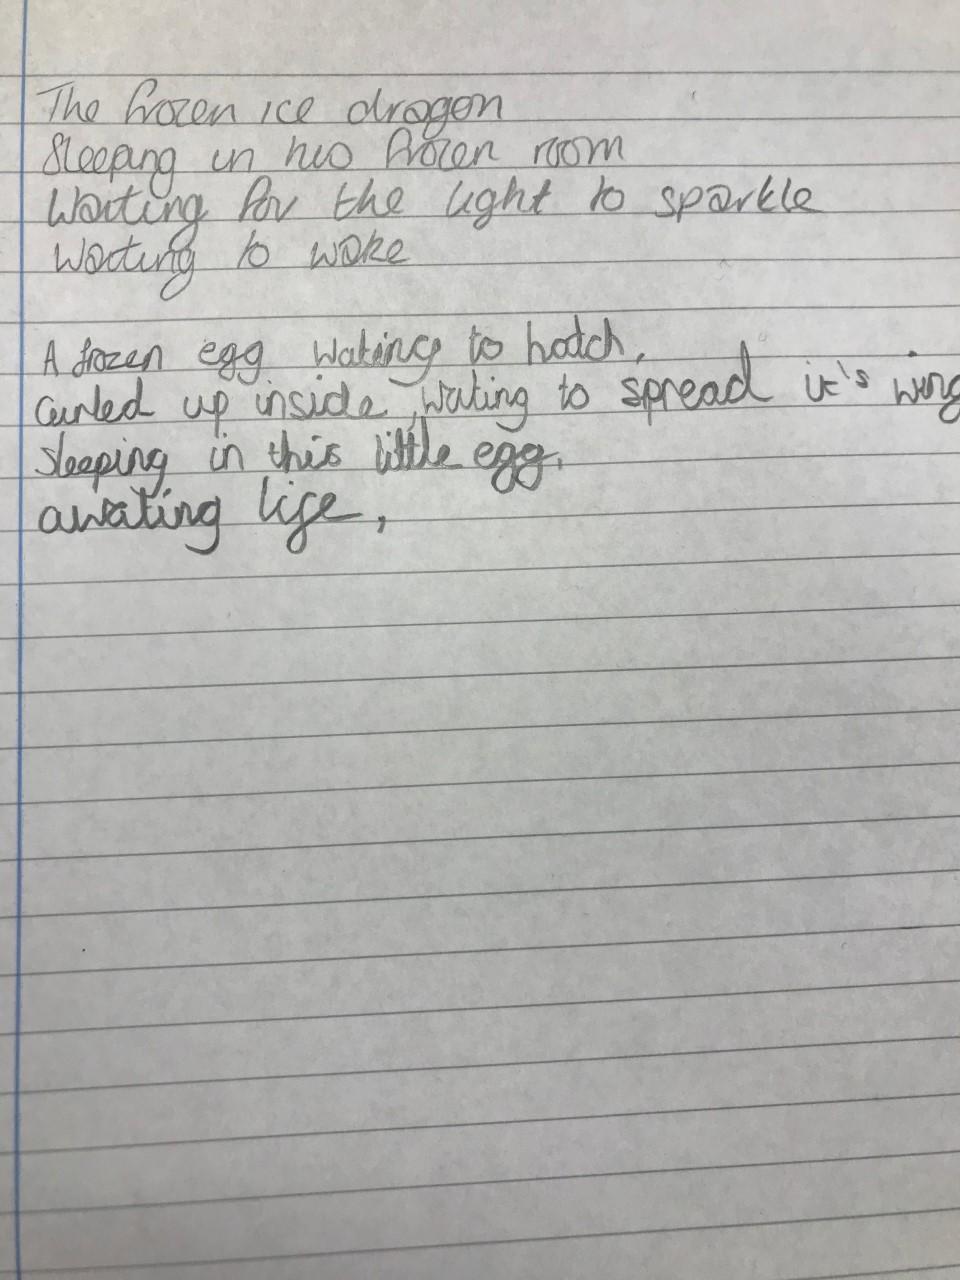 The frozen ice dragon
Sleeping in his frozen room
Waiting for the light to sparkle
Waiting to wake
A frozen egg wating to hatch,
Curled up inside, wating to spread it's wing
sleeping in this little egg,
awating life,